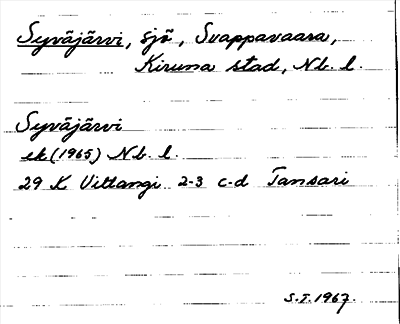 Syväjärvi, sjö, Svappavaara,
Kiruna stad, Nb. l.
Syväjärvi
ek (1965) Nb. l.
29 K Vittangi 2-3 c-d Tansari
S.I. 1967.